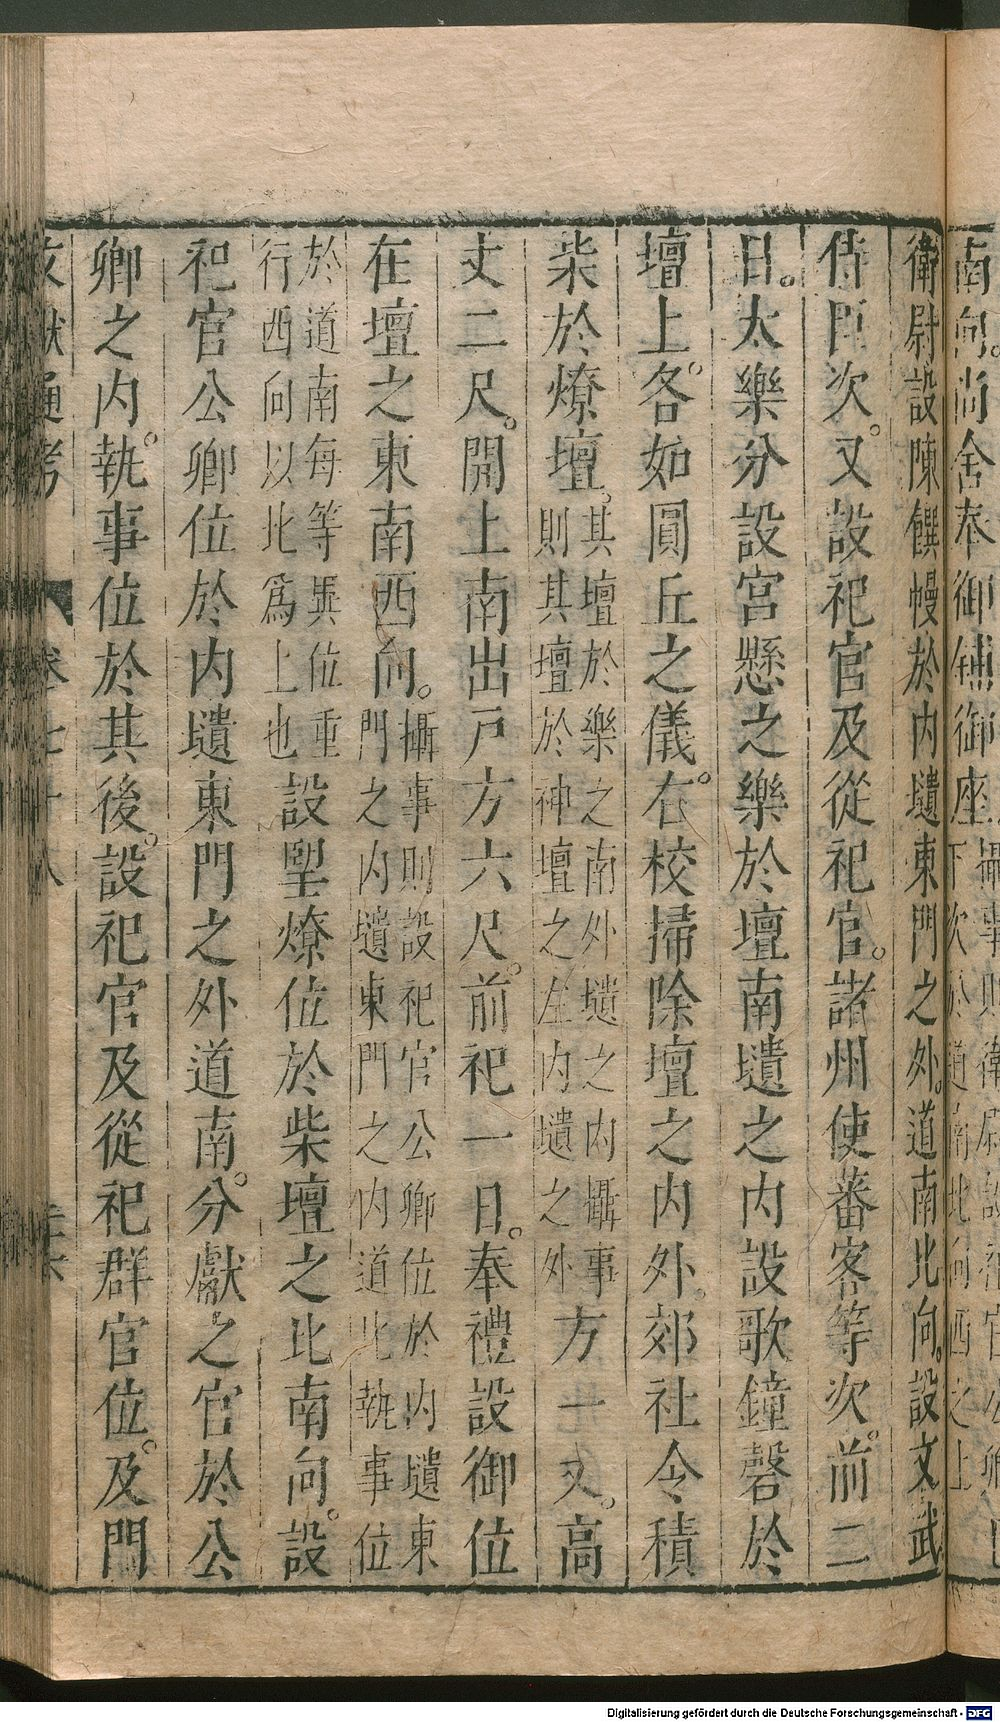 南向。尚舍奉御鋪御座
衛尉設陳饌幔於内壝東門之外。道南北向。設文武
侍臣次。又設祀官及從祀官。諸州使蕃客等次。前二
日。太樂分設宮懸之樂於壇南壝之内設歌鐘磬於
壇上。各如圓丘之儀。右校掃除壇之内外。郊社令積
柴於燎壇。其壇於樂之南外壝之内攝事
則其壇於神壇之左内壝之外方一丈。高
丈二尺。開上南出戸方六尺。前祀一日。奉禮設御位
在壇之東南西向。攝事則設祀官公卿位於内壝東
門之内壝東門之内道北執事位
於道南每等異位重
行西向以北爲上也設望燎位於柴壇之北南向。設
祀官公卿位於内壝東門之外道南。分獻之官於公
卿之内。執事位於其後。設祀官及從祀群官位。及門
文獻通考 卷七十八
Digitalisierung gefördert durch die Deutsche Forschungsgemeinschaft - DFG